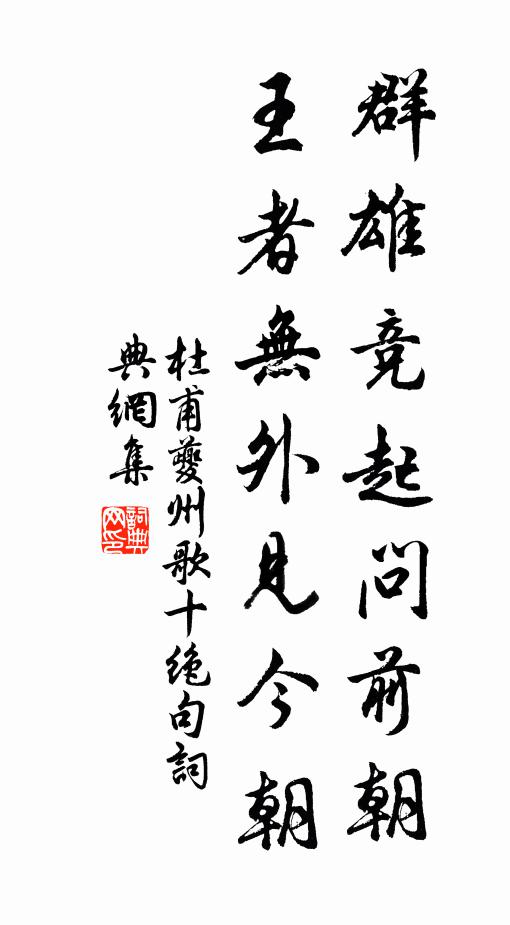 群雄竞起問前朝
王者無外見今朝
杜甫夔州歌十绝句詞
典網集
詞典
网印